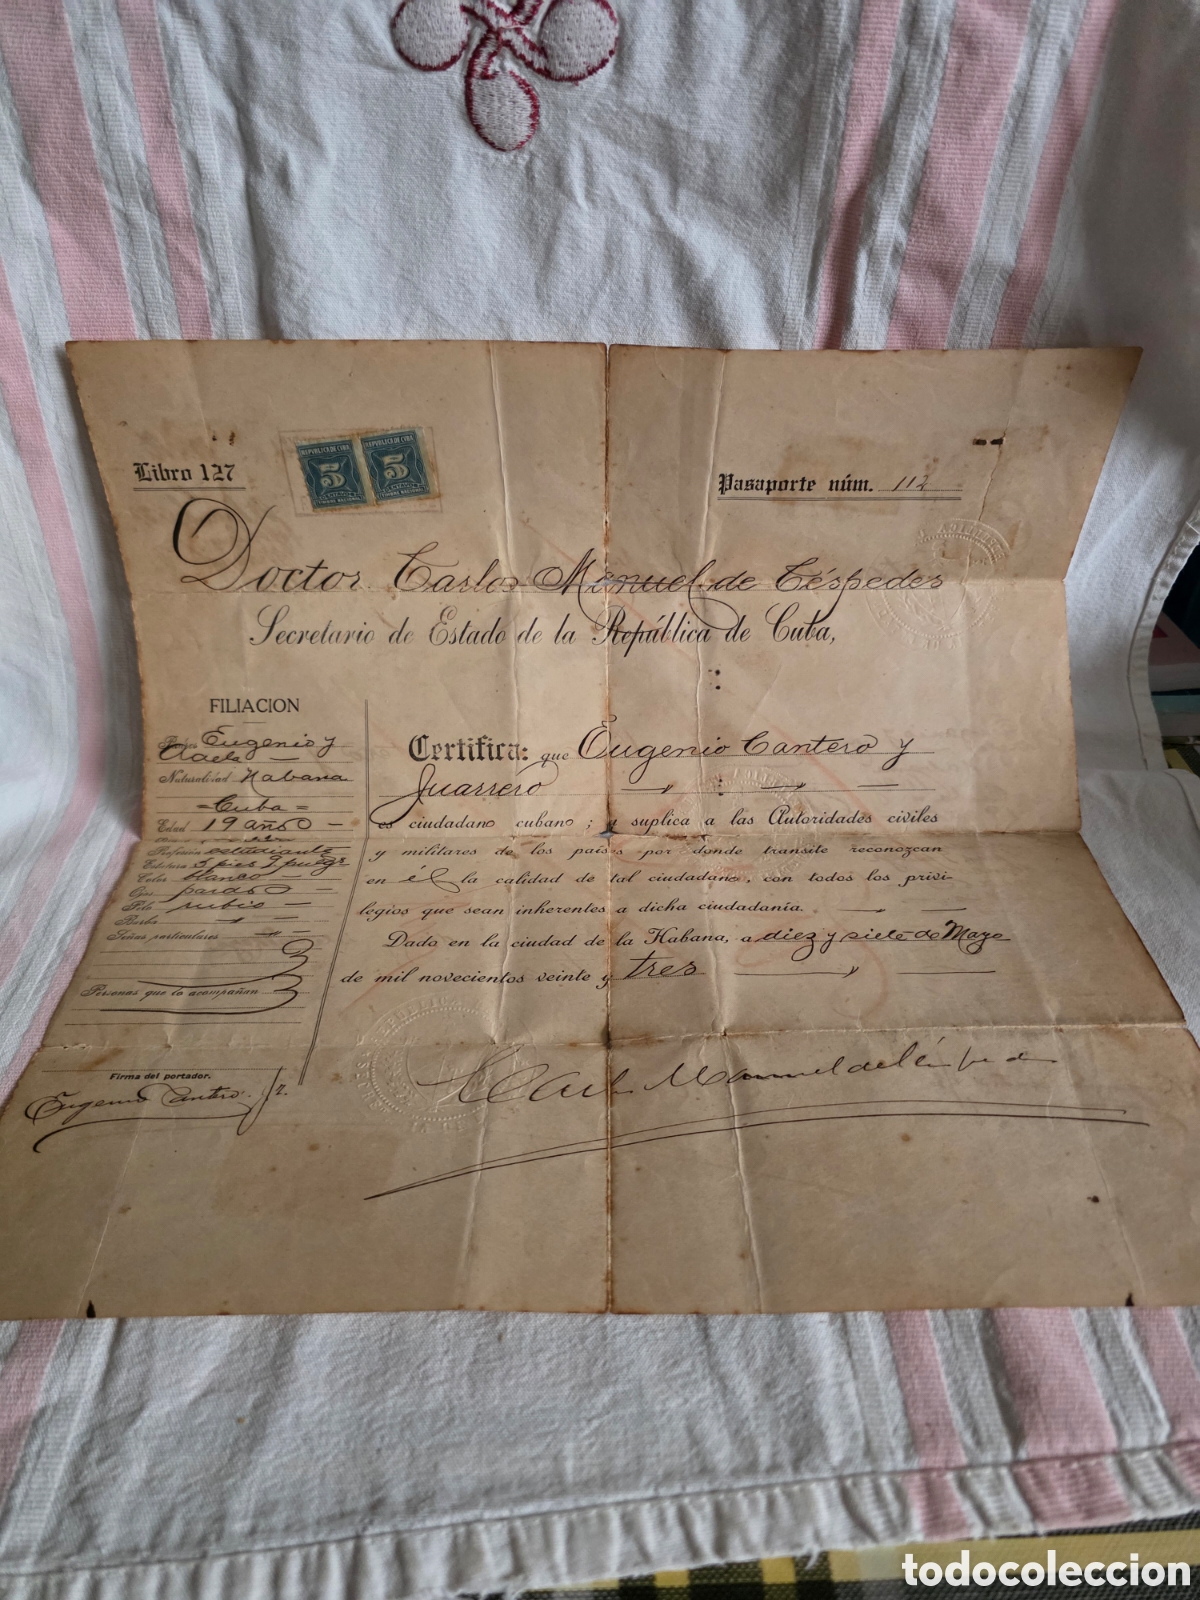 Libro 127
REPUBLICA DE CUBA
5
TIMBRE NACIONAL
REPUBLICA DE CUBA
5
TIMBRE NACIONAL
Pasaporte núm. 112
Doctor Carlos Manuel de Céspedes
Secretario de Estado de la República de Cuba,
FILIACION
Eugenio y
Naturalidad Habana
Cuba
Edad 19 año
Profesión estudiante
Estatura 5 pies 9 pulgs
Color blanco
Ojos pardo
Pelo rubio
Barba
Señas particulares
Personas que lo acompañan
Firma del portador.
Eugenio Cantero Jr.
Certifica: que Eugenio Cantero y
Guarrero
es ciudadano cubano; y suplica a las Autoridades civiles
y militares de los países por donde transite reconozcan
en él la calidad de tal ciudadano, con todos los privi-
legios que sean inherentes a dicha ciudadanía.
Dado en la ciudad de la Habana, a diez y siete de Mayo
de mil novecientos veinte y tres
Carlos Manuel de Céspedes
todocoleccion